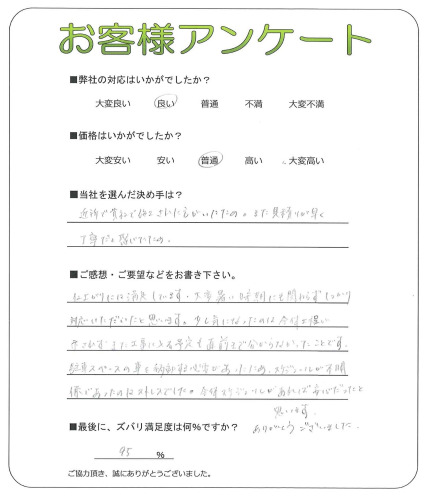 お客様アンケート
■弊社の対応はいかがでしたか？
大変良い 良い 普通 不満 大変不満
■価格はいかがでしたか？
大変安い 安い 普通 高い 大変高い
■当社を選んだ決め手は？
近所で貴社で施工された方がいたため。また見積りが早く
丁寧だと感じたため。
■ご感想・ご要望などをお書き下さい。
仕上がりには満足しています。大変暑い時期にも関わらず しっかり
対応いただいたと思います。少し気になったのは
工事に入る予定も直前まで分からなかったことです。
駐車スペースの車を移動する必要があったため、スケジュールが不明
確であったのはストレスでした。スケジュールがあれば安心だったと
思います。
ありがとうございました。
■最後に、ズバリ満足度は何%ですか？
95 %
ご協力頂き、誠にありがとうございました。